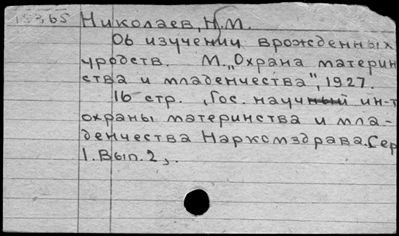 15365 Николаев, Н.М.
Об изучении врожденных
уродств. М. „Охрана материн
ства и младенчества", 1927.
16 стр. , Гос. научный ин-т
охраны материнства и мла-
денчества Наркомздрава. Сер
1. Вып. 2, .